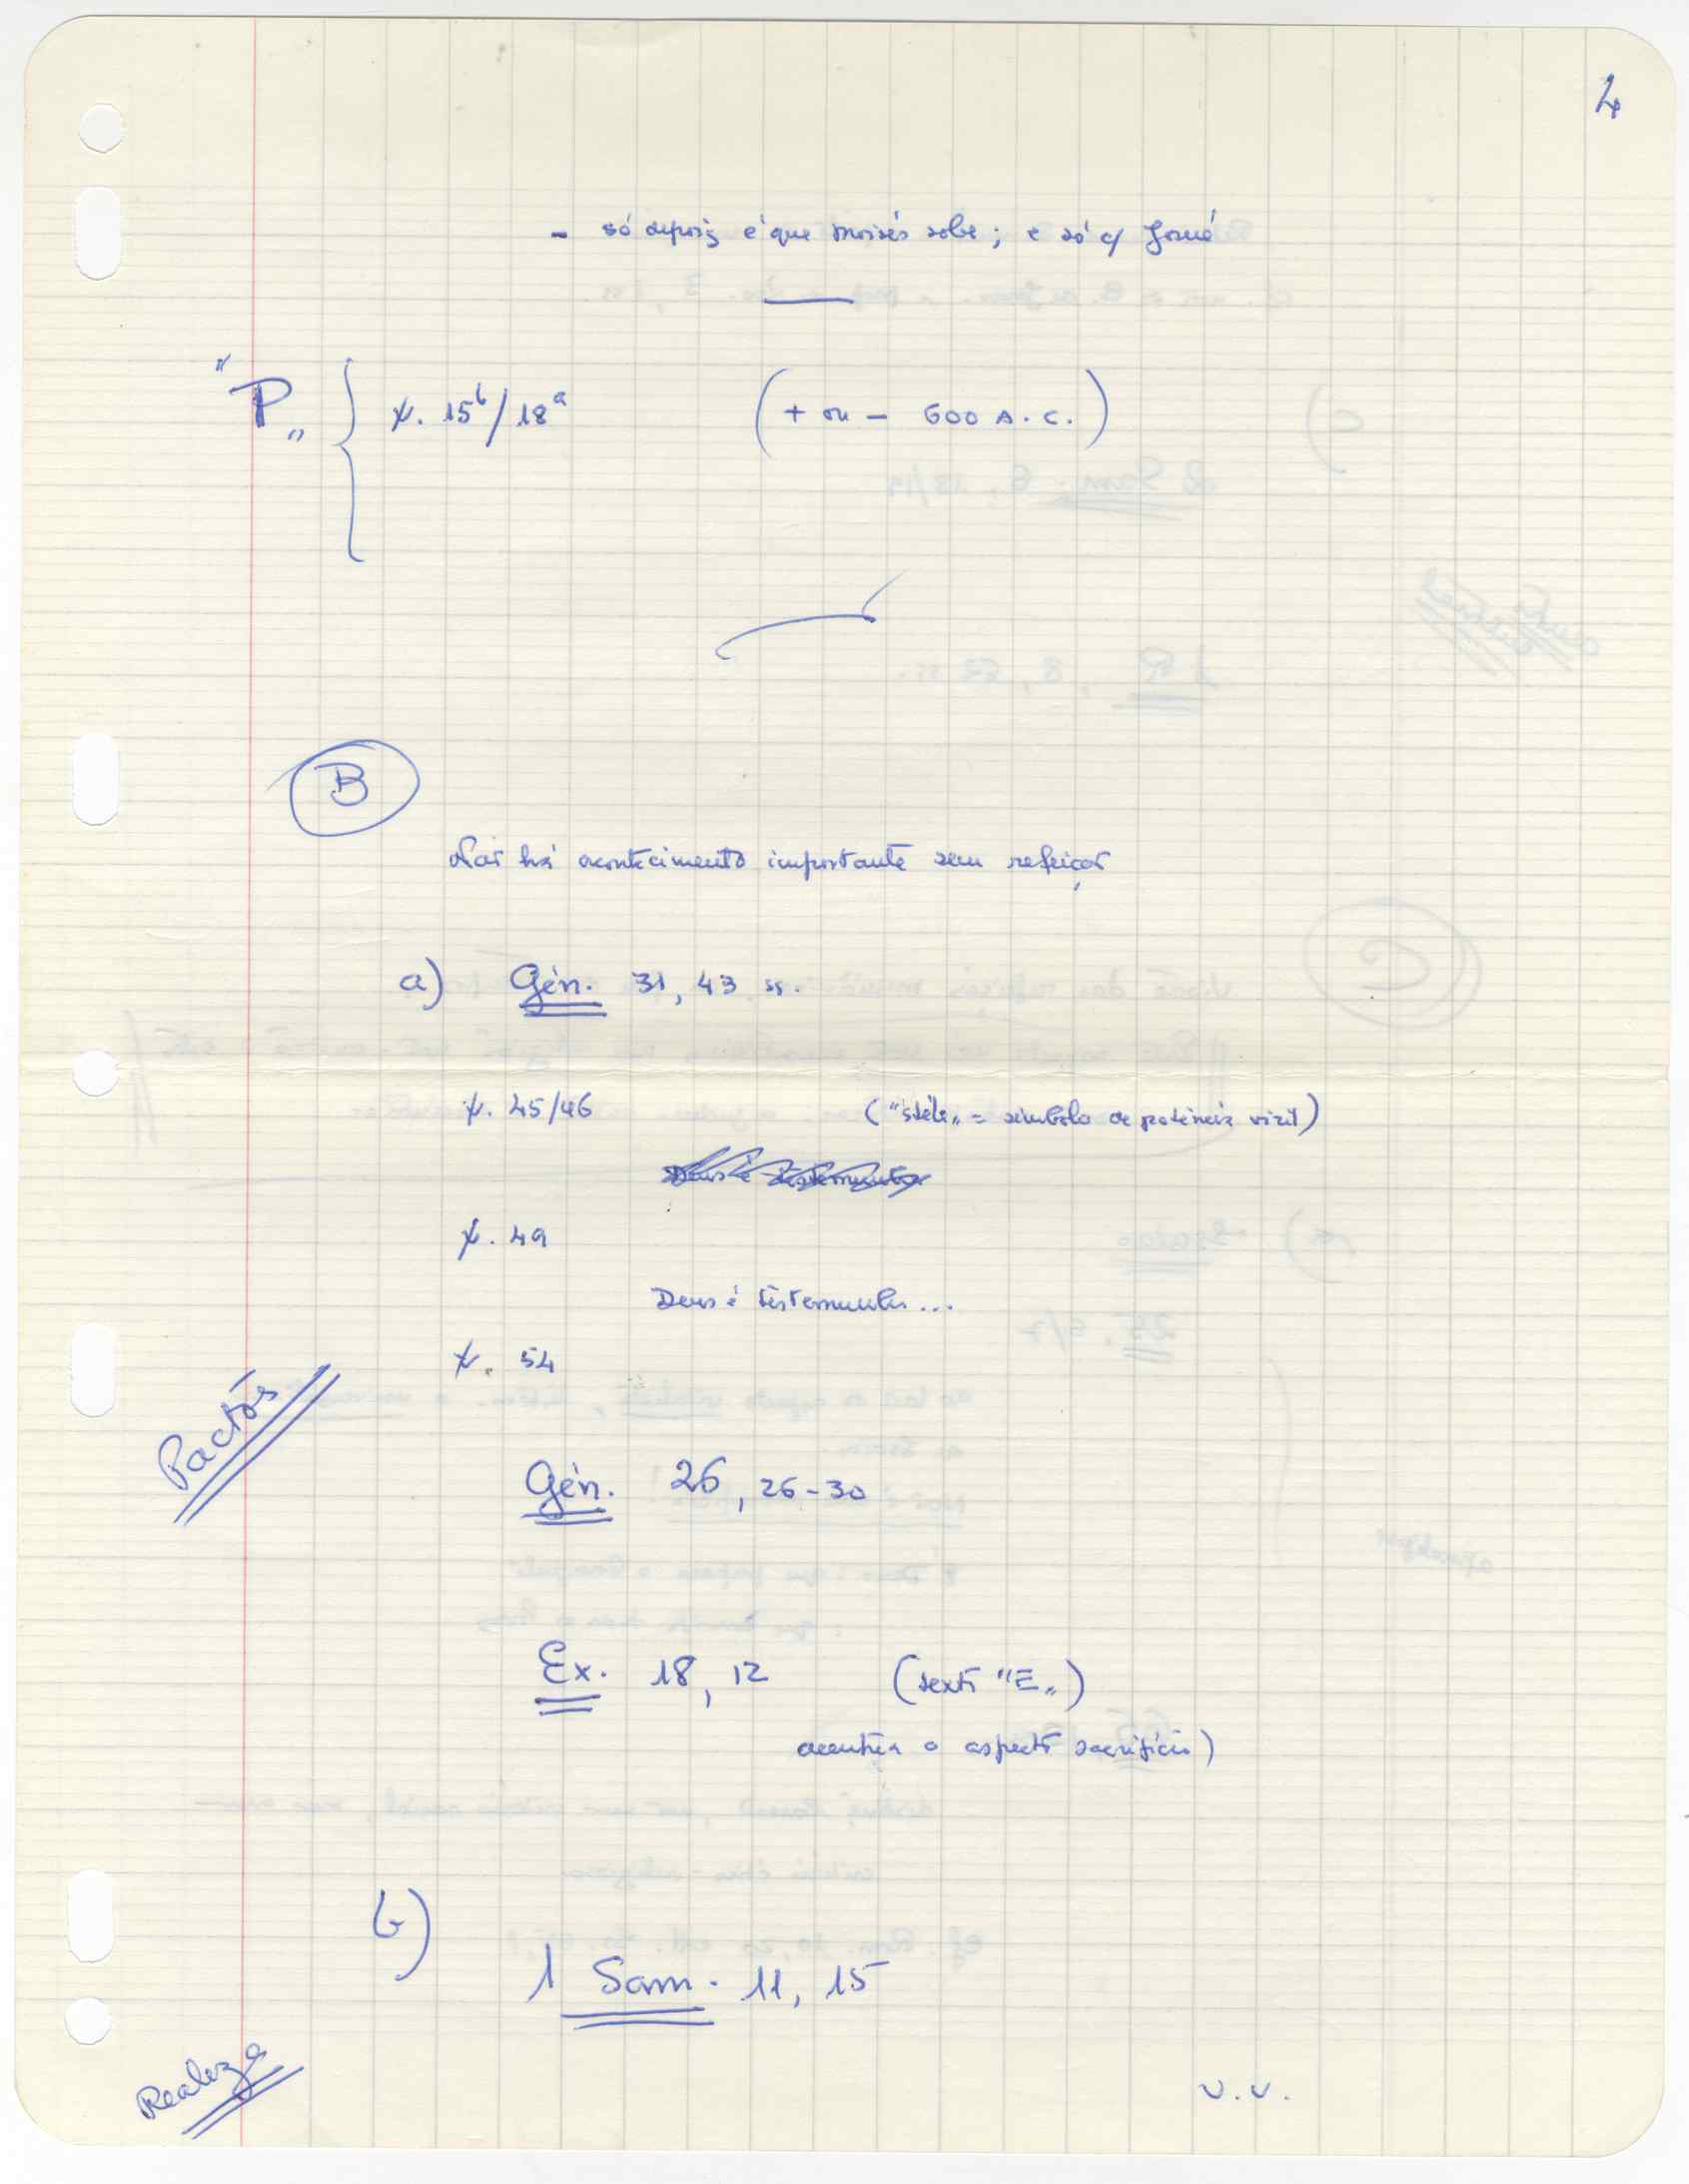 4
- só depois é que Moisés sobe; e só c/ Josué
"P„ { v. 15b/18a (+ ou - 600 A.C.)
B
Não há acontecimento importante sem refeição
a) Gén. 31, 43 ss.
v. 45/46 ("stéle„ = símbolo de potência viril)
Deus é testemunha
v. 49
Deus é testemunha...
v. 54
Pactos
Gén. 26, 26-30
Ex. 18, 12 (texto "E„)
acentua o aspecto sacrifício)
b)
1 Sam. 11, 15
Realeza
v.v.